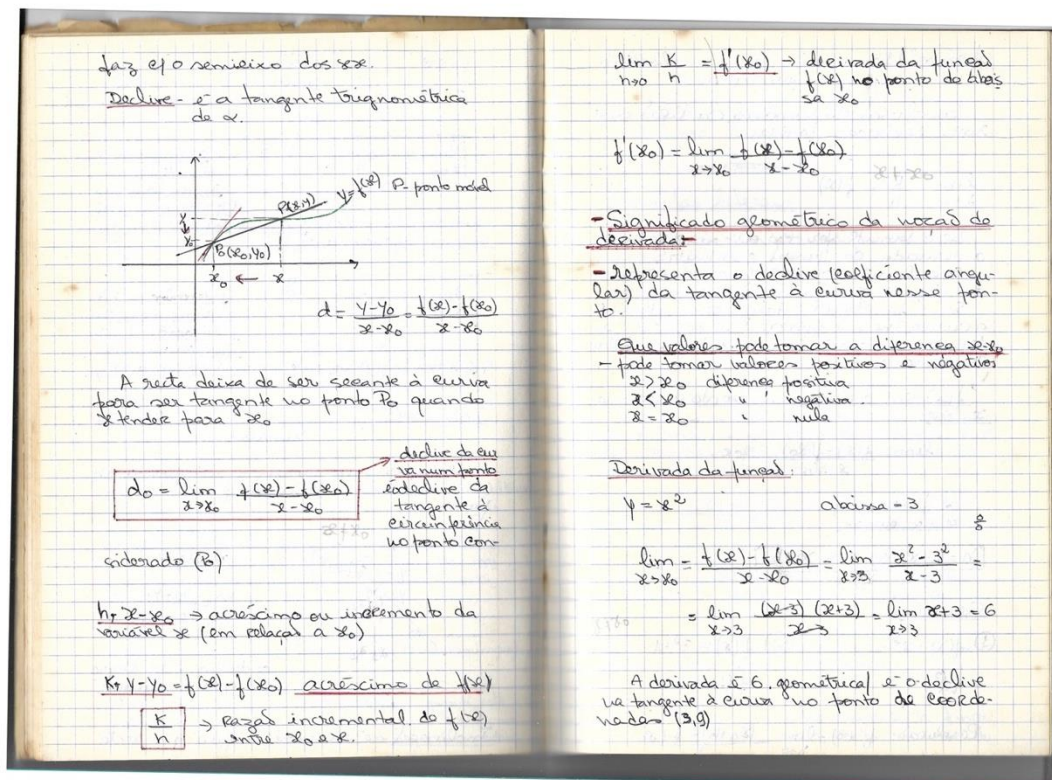 faz c/ o semieixo dos xx.
Declive - é a tangente trignométrica
de α.
y=f(x) P- ponto móvel
P(x,y)
y
y₀
P₀(x₀,y₀)
x₀ ← x
d = y-y₀/x-x₀ = f(x)-f(x₀)/x-x₀
A recta deixa de ser secante à curva
para ser tangente no ponto P₀ quando
x tender para x₀
d₀ = lim x→x₀ f(x)-f(x₀)/x-x₀
→ declive da cur
va num ponto
é o declive da
tangente à
circunferência
no ponto con-
siderado (P₀)
h = x-x₀ → acréscimo ou incremento da
variável x (em relação a x₀)
K = y-y₀ = f(x)-f(x₀) acréscimo de f(x)
K/h → Razão incremental de f(x)
entre x₀ e x.
lim h→0 K/h = f'(x₀) → derivada da função
f(x) no ponto de abcis
sa x₀
f'(x₀) = lim x→x₀ f(x)-f(x₀)/x-x₀
- Significado geométrico da noção de
derivada:-
- representa o declive (coeficiente angu-
lar) da tangente à curva nesse pon-
to.
Que valores pode tomar a diferença x-x₀
- pode tomar valores positivos e negativos
x > x₀ diferença positiva
x < x₀ " negativa.
x = x₀ " nula
Derivada da função:
y = x² abcissa = 3
0/0
lim x→x₀ = f(x)-f(x₀)/x-x₀ = lim x→3 x²-3²/x-3 =
= lim x→3 (x-3)(x+3)/x-3 = lim x→3 x+3 = 6
A derivada é 6. geometrica/ é o declive
na tangente à curva no ponto de coorde-
nadas (3,9)